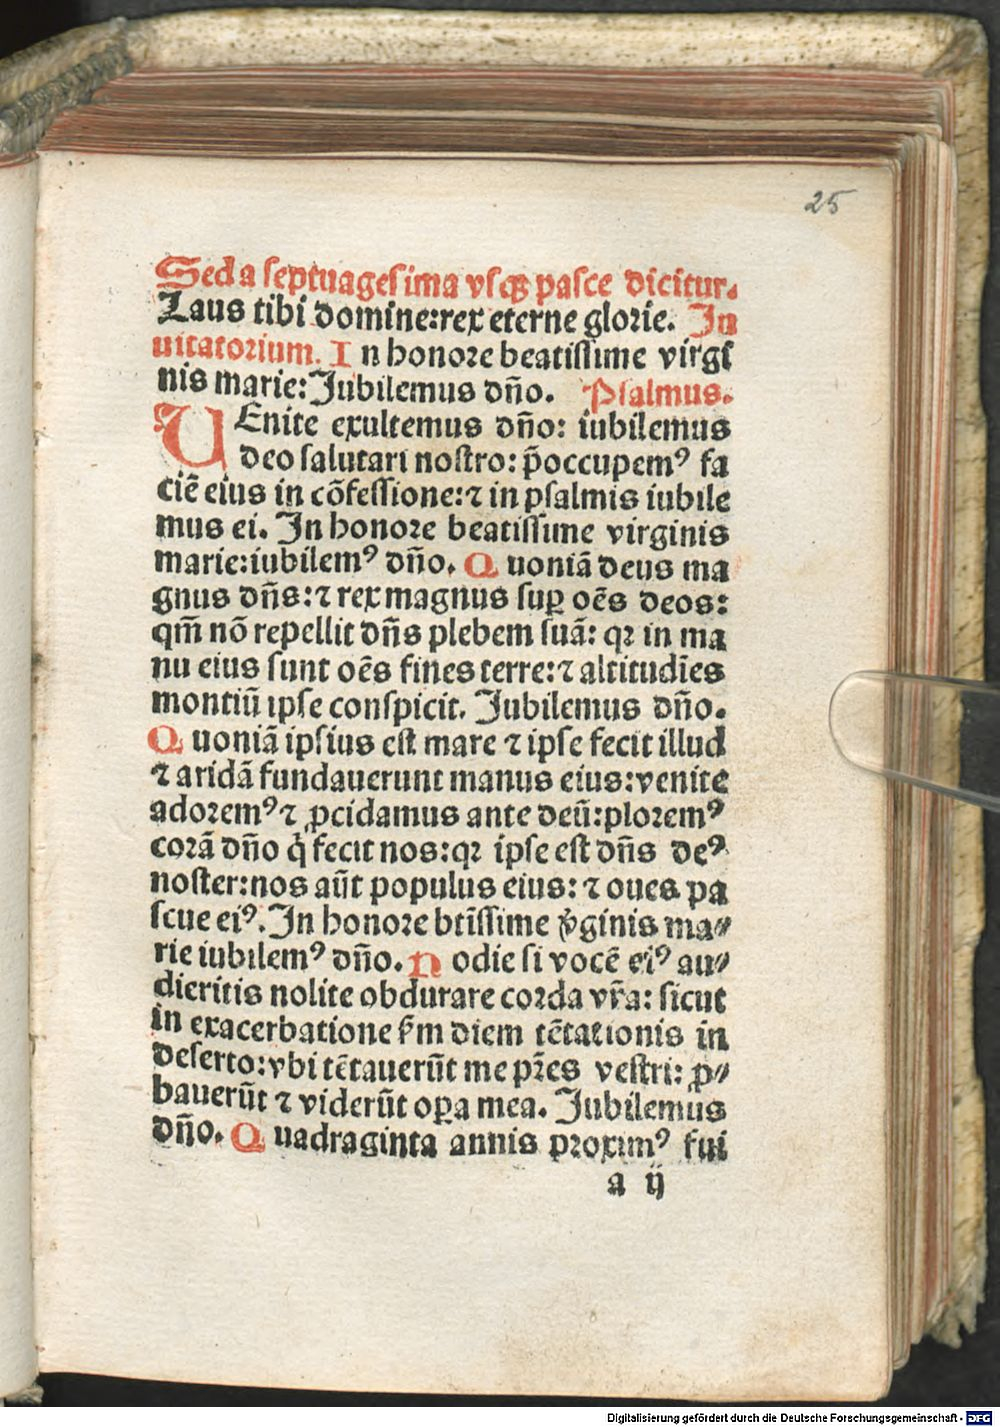 25
Sed a ſeptuagesima vſqꝫ paſce dicitur.
Laus tibi domine:rex eterne glorie. In
uitatorium. In honore beatiſſime virgi
nis marie: Jubilemus dn̄o. Pſalmus.
UEnite exultemus dn̄o: iubilemus
deo ſalutari noſtro: p̄occupemꝰ fa
ciē eius in cōfeſſione:⁊ in pſalmis iubile
mus ei. In honore beatiſſime virginis
marie:iubilemꝰ dn̄o. Quoniā deus ma
gnus dn̄s:⁊ rex magnus ſuꝑ oēs deos:
qm̄ nō repellit dn̄s plebem ſuā: qꝛ in ma
nu eius ſunt oēs fines terre:⁊ altitudīes
montiū ipſe conſpicit. Jubilemus dn̄o.
Quoniā ipſius eſt mare ⁊ ipſe fecit illud
⁊ aridā fundauerunt manus eius:venite
adoremꝰ ⁊ ꝓcidamus ante deū:ploremꝰ
corā dn̄o q̇ fecit nos:qꝛ ipſe eſt dn̄s deꝰ
noſter:nos aūt populus eius: ⁊ oues pa
ſcue eiꝰ. In honore btīſſime v̓ginis ma⸗
rie iubilemꝰ dn̄o. Hodie ſi vocē eiꝰ au⸗
dieritis nolite obdurare corda vr̄a: ſicut
in exacerbatione ẜm diem tētationis in
deſerto:vbi tētauerūt me pr̄es veſtri: ꝓ⸗
bauerūt ⁊ viderūt oꝑa mea. Jubilemus
dn̄o. Quadraginta annis proximꝰ fui
a ij
Digitalisierung gefördert durch die Deutsche Forschungsgemeinschaft - DFG